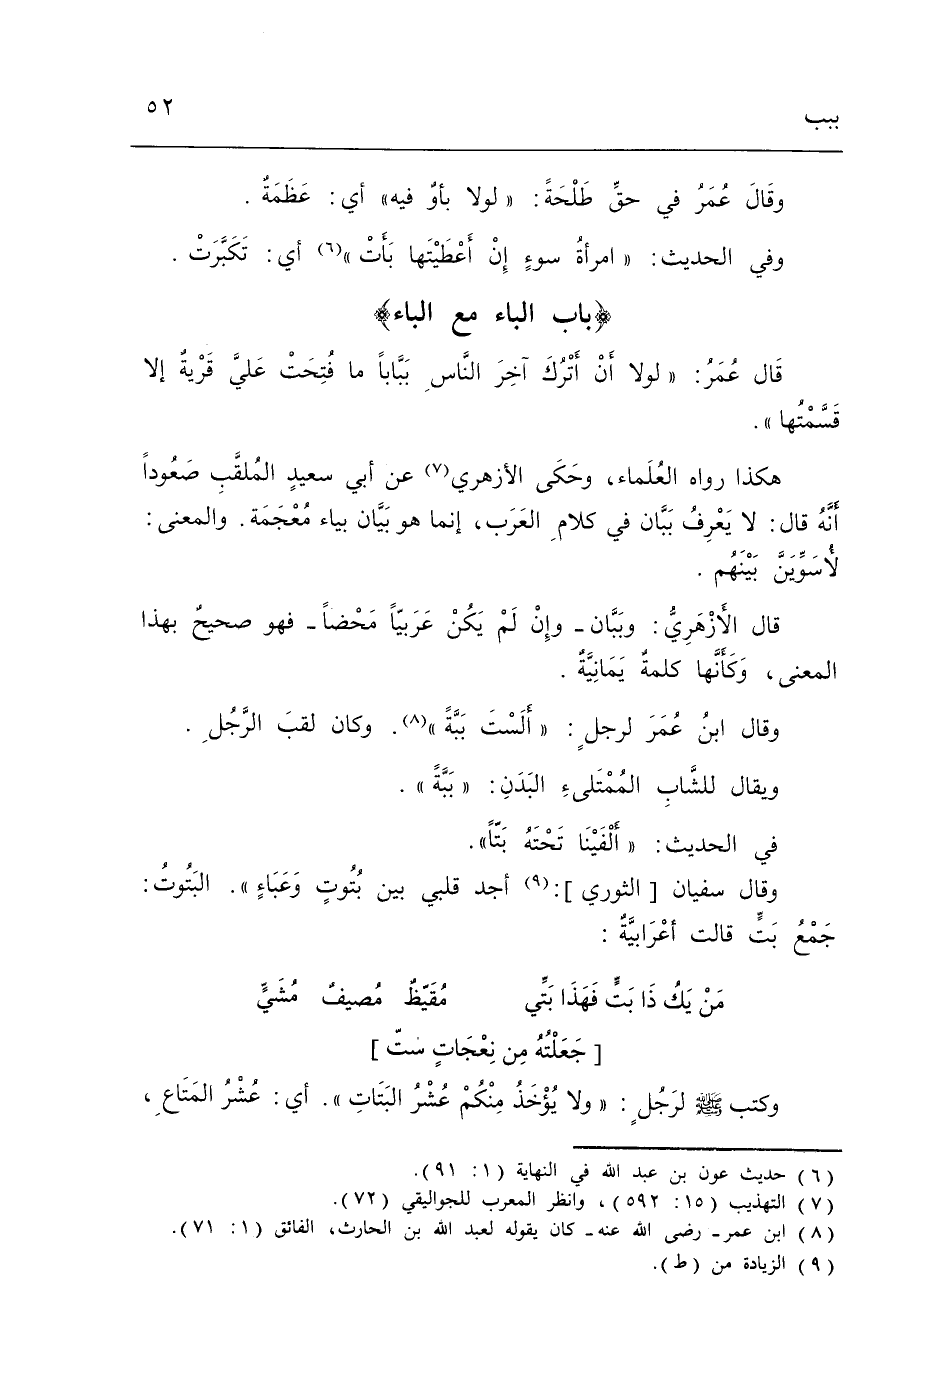 ببب ٥٢
وقَالَ عُمَرُ في حقِّ طَلْحَةً: « لولا بأوٌ فيه» أي: عَظَمَةٌ .
وفي الحديث: « امرأةُ سوءٍ إِنْ أَعْطَيْتَها بَأَتْ »(٦) أي: تَكَبَّرَتْ .
﴿باب الباء مع الباء﴾
قَال عُمَرُ: « لولا أَنْ أَتْرُكَ آخِرَ النَّاسِ بَبَّاباً ما فُتِحَتْ عَلَيَّ قَرْيةٌ إلا
قَسَّمْتُها ».
هكذا رواه العُلَماء، وحَكَى الأزهري(٧) عن أبي سعيدٍ المُلقَّبِ صَعُوداً
أَنَّهُ قال: لا يَعْرِفُ بَبَّان في كلامِ العَرَب، إنما هو بَيَّان بياء مُعْجَمَة. والمعنى:
لأُسَوِّيَنَّ بَيْنَهُم .
قال الأَزْهَرِيُّ: وبَبَّان ـ وإِنْ لَمْ يَكُنْ عَرَبيّاً مَحْضاً ـ فهو صحيحٌ بهذا
المعنى، وَكَأَنَّها كلمةٌ يَمَانِيَّةٌ .
وقال ابنُ عُمَرَ لرجلٍ: « أَلَسْتَ بَبَّةً »(٨). وكان لقبَ الرَّجُلِ .
ويقال للشَّابِ المُمْتَلىءِ البَدَنِ: « بَبَّةً » .
في الحديث: « أَلْفَيْنَا تَحْتَهُ بَتّاً».
وقال سفيان [ الثوري ]:(٩) أجد قلبي بين بُتُوتٍ وَعَبَاءٍ ». البَتُوتُ:
جَمْعُ بَتٍّ قالت أعْرَابيَّةٌ :
مَنْ يَكُ ذَا بَتٍّ فَهَذَا بَتِّي مُقَيّظٌ مُصيفٌ مُشَيٍّ
[ جَعَلْتُهُ مِن نِعْجَاتٍ ستّ ]
وكتب ﷺ لرَجُلٍ: « ولا يُؤْخَذُ مِنْكُمْ عُشْرُ البَتَاتِ ». أي: عُشْرُ المَتَاعِ،
(٦) حديث عون بن عبد الله في النهاية (١: ٩١).
(٧) التهذيب (١٥: ٥٩٢)، وانظر المعرب للجواليقي (٧٢).
(٨) ابن عمر ـ رضى الله عنه ـ كان يقوله لعبد الله بن الحارث، الفائق (١: ٧١).
(٩) الزيادة من (ط).